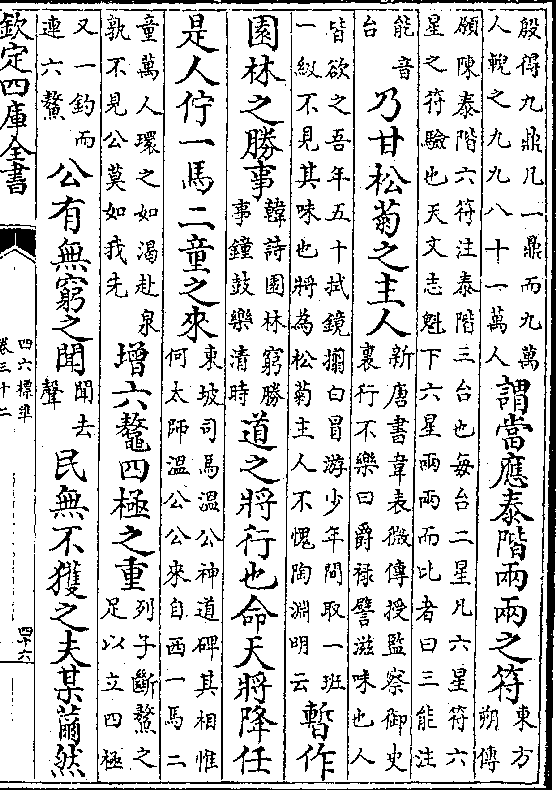 殷得九鼎凡一鼎而九萬
人輓之九九八十一萬人
謂當應泰階兩兩之符
東方
朔傳
願陳泰階六符注泰階三台也每台二星凡六星符六
星之符驗也天文志魁下六星兩兩而比者曰三能注
能音
台
乃甘松菊之主人
新唐書韋表微傳授監察御史
裏行不樂曰爵禄譬滋味也人
皆欲之吾年五十拭鏡搦白冒游少年間取一班
一級不見其味也將為松菊主人不愧陶淵明云
暫作
園林之勝事
韓詩園林窮勝
事鐘鼓樂清時
道之將行也命天將降任
是人佇一馬二童之來
東坡司馬溫公神道碑其相惟
何太師溫公公來自西一馬二
童萬人環之如渴赴泉
孰不見公莫如我先
增六鼇四極之重
列子斷鼇之
足以立四極
又一釣而
連六鼇
公有無窮之聞
聞去
聲
民無不獲之夫某薾然
欽定四庫全書
四六標準
卷三十二
四十六